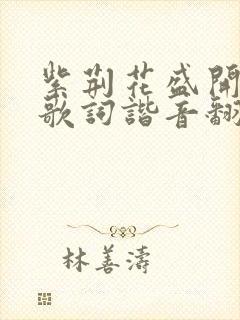 紫荊花盛開
歌詞諧音翻
林善濤